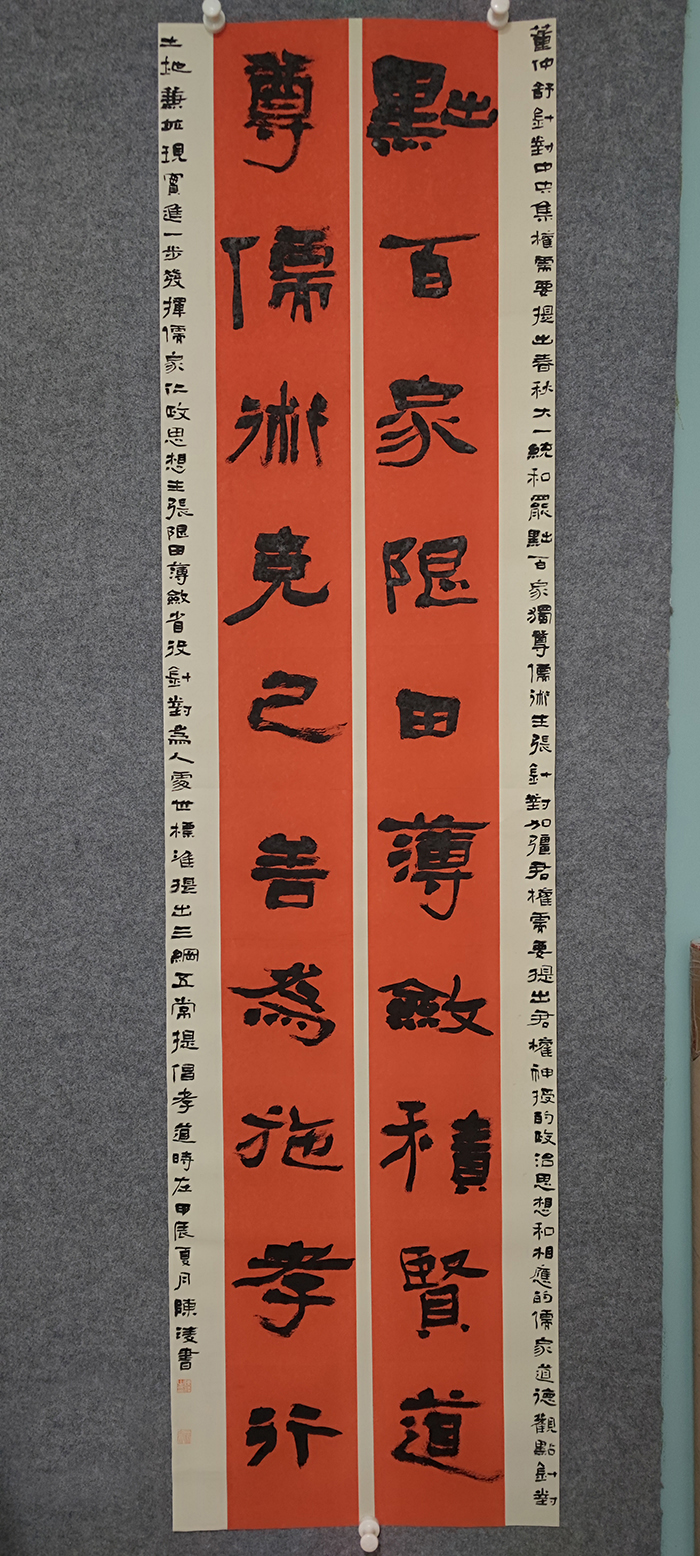 董仲舒針對中央集權需要提出春秋大一統和罷黜百家獨尊儒術主張針對加彊君權需要提出君權神授的政治思想和相應的儒家道德觀點針對
黜百家限田薄斂積賢道
尊儒術克己善為施孝行
土地兼並現實進一步發揮儒家仁政思想主張限田薄斂省役針對為人處世標準提出三綱五常提倡孝道時在甲辰夏月陳淩書